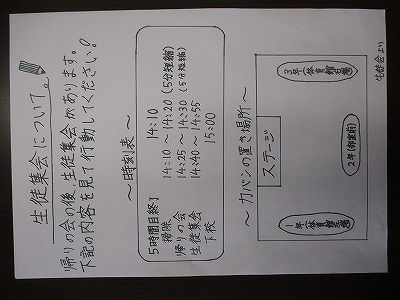 生徒集会について。
帰りの会の後、生徒集会があります。
下記の内容を見て行動してください！
～時刻表～
5時間目終了 14:10
掃除 14:10～14:20 (5分短縮)
帰りの会 14:25～14:30 (5分短縮)
生徒集会 14:40～14:55
下校 15:00
～カバンの置き場所～
ステージ
3年(体育館
1年(体育館
2年(部室前)
生徒会より